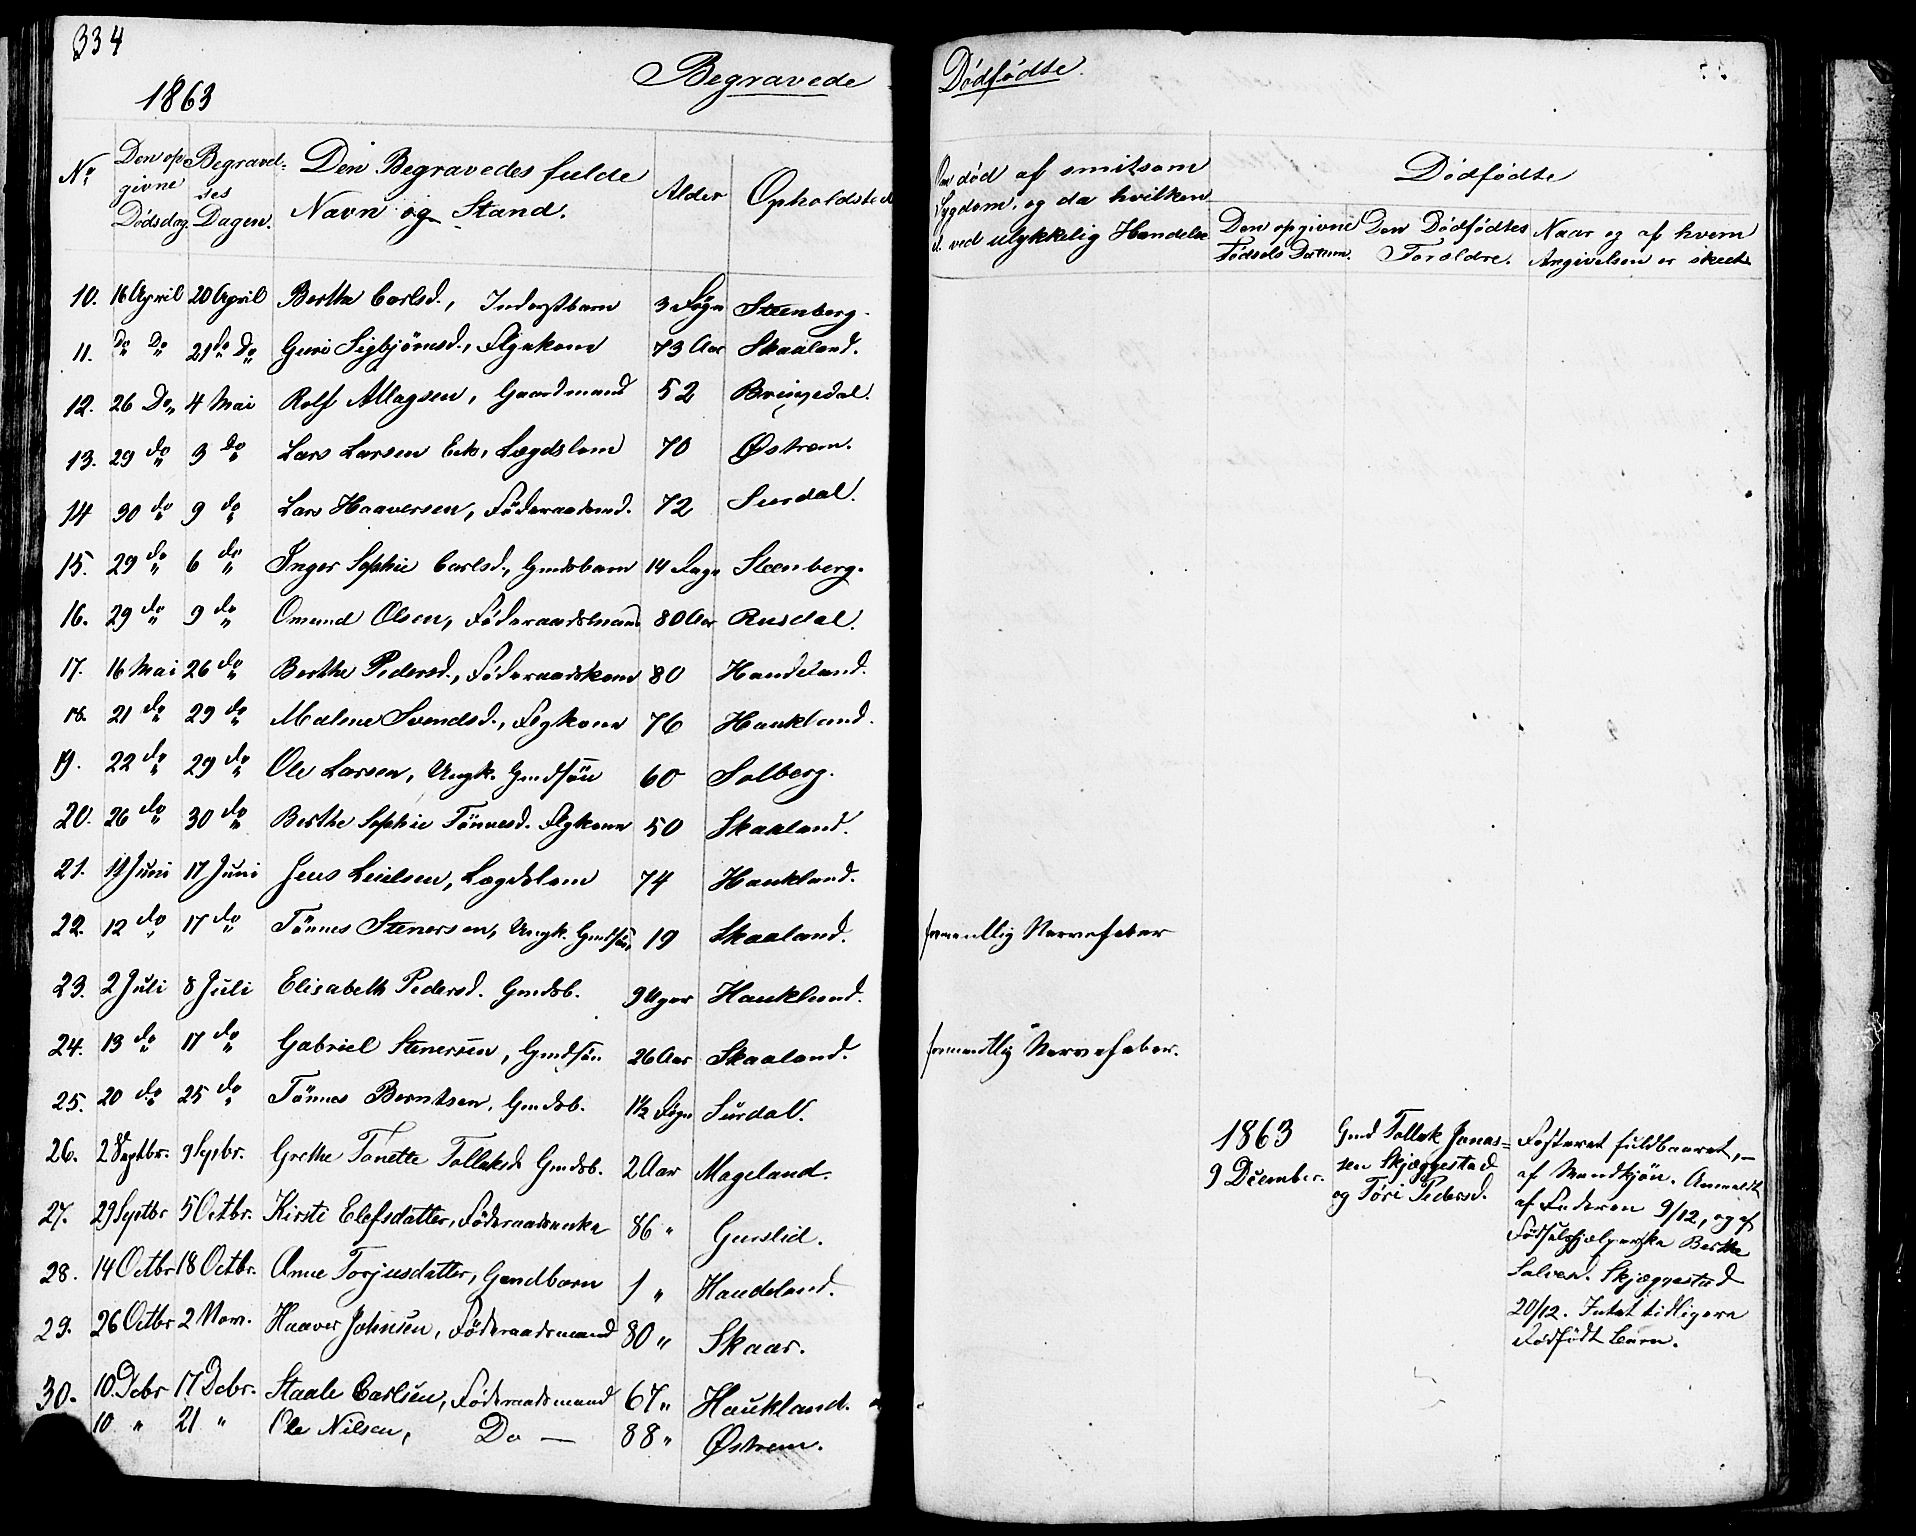 334
1863
Begravede
No
Den op-
givne
Dødsdag.
Begravel-
ses
Dagen.
Den Begravedes fulde
Navn og Stand.
Alder
Opholdsted
10. 16 April 20 April Berthe Carlsd., Inderstbarn 3 Døgn Steenberg.
11. Do Do 21 do Do Guri Sigbjörnsd., Flgkone 73 Aar Skaaland.
12. 26 Do 4 Mai Rolf Atlagsen, Gaardmand 52 Bringedal.
13. 29 do 3 do Lars Larsen Eek, Lægdslem 70 Østrem.
14 30 do 9 do Lars Haaversen, Föderaadsmd. 72 Surdal.
15. 29 do 6 do Inger Sophie Carlsd., Gmdsbarn 14 Dage Steenberg.
16. 29 do 9 do Omund Olsen, Föderaadsmand 80 Aar Rusdal.
17. 16 Mai 26 do Berthe Pedersd., Föderaadskone 80 Handeland.
18. 21 do 29 do Malene Svendsd., Flgkone 76 Haukland.
19. 22 do 29 do Ole Larsen, Ungk. Gmdsön 60 Solberg.
20. 26 do 30 do Berthe Sophie Tönnesd. Flgkone 50 Skaaland.
21. 11 Juni 17 Juni Jens Leielsen, Lægdslem 74 Haukland.
22. 12 do 17 do Tönnes Stenersen, Ungk. Gmdsön, 19 Skaaland.
23. 2 Juli 8 Juli Elisabeth Pedersd. Gmdsb. 9 Uger Haukland.
24. 13 do 17 do Gabriel Stenersen, Gmdsön 26 Aar Skaaland.
25. 20 do 25 do Tönnes Berntsen, Gmdsb. 1½ Døgn Surdal.
26. 2 Septbr. 9 Septbr. Grethe Tonette Tollaksd. Gmdsb. 2 Aar Mageland.
27. 29 Septbr 5 Octbr. Kirsti Elefsdatter, Föderaadsenke 86 " Gurslid.
28. 14 Octbr 18 Octbr. Anne Torjusdatter, Gmdbarn 1 " Handeland.
29. 26 Octbr 2 Nov. Haaver Johnsen, Föderaadsmand 80 " Skaar.
30. 10. Debr 17 Debr. Staale Carlsen, Föderaadsmand 67 " Haukland.
10 " 21 " Ole Nilsen, Do — 88 " Østrem.
Dødfødte.
Om död af smitsom
Sygdom, og da hvilken
el. ved ulykkelig Hændelse
Dødfødte
Den opgivne
Födsels Datum.
Den Dödfödtes
Forældre.
Naar og af hvem
Angivelsen er skeet
formentlig Nervefeber
formentlig Nervefeber.
1863
9 December.
Gmd Tollak Jonas-
sen Skjæggestad
og Töri Pedersd.
Fosteret fuldbaaret,—
af Mandkjön. Anmeldt
af Faderen 9/12, og af
Födselshjælperske Berthe
Salvesd. Skjæggestad
20/12. Intet tidligere
dödfödt Barn.